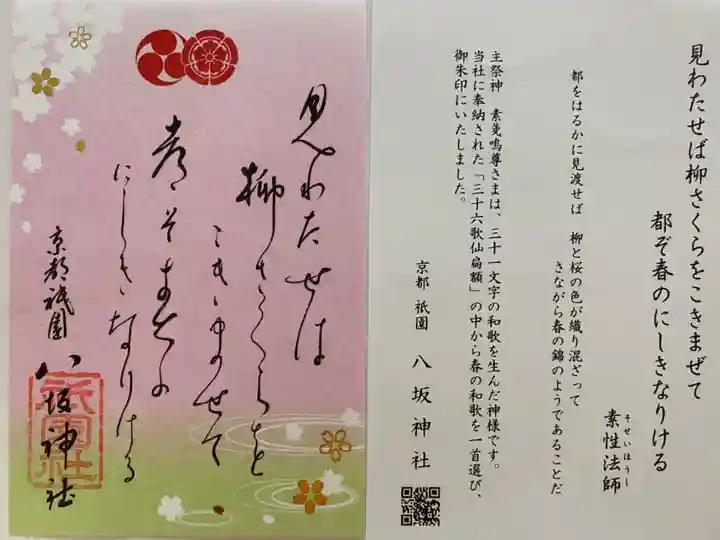 見わたせば柳さくらをこきまぜて
都ぞ春のにしきなりける
素性法師
そせいほうし
都をはるかに見渡せば 柳と桜の色が織り混ざって
さながら春の錦のようであることだ
主祭神 素戔嗚尊さまは、三十一文字の和歌を生んだ神様です。
当社に奉納された「三十六歌仙扁額」の中から春の和歌を一首選び、
御朱印にいたしました。
京都 祇園 八坂神社
見わたせは
柳さくらを
こきませて
都そ春の
にしきなりける
京都祇園
八坂神社
祇園社